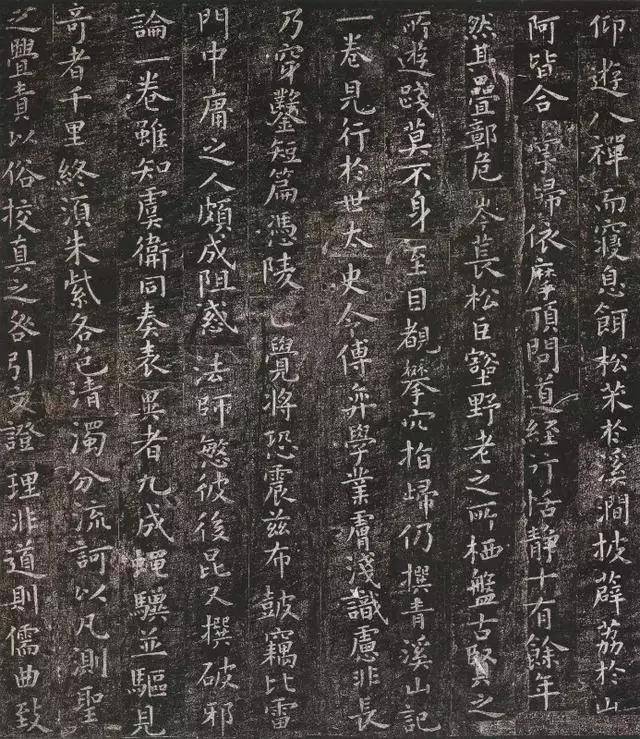 仰遊八禪而寢息餌松朮於溪澗披薜荔於山
阿皆合掌歸依摩頂問道經行恬靜十有餘年
然其疊鄣危岑萇松巨壑野老之所栖盤古賢之
所遊踐莫不身至目覩攀穴指歸仍撰青溪山記
一卷見行於世太史令傅弈學業膚淺識慮非長
乃穿鑿短篇憑陵正覺將恐震茲布鼓竊比雷
門中庸之人頗成阻惑法師慜彼後昆又撰破邪
論一卷雖知虞衛同奏表異者九成蠅驥並驅見
奇者千里終須朱紫各色清濁分流訶以凡測聖
之舋責以俗校真之咎引文證理非道則儒曲致